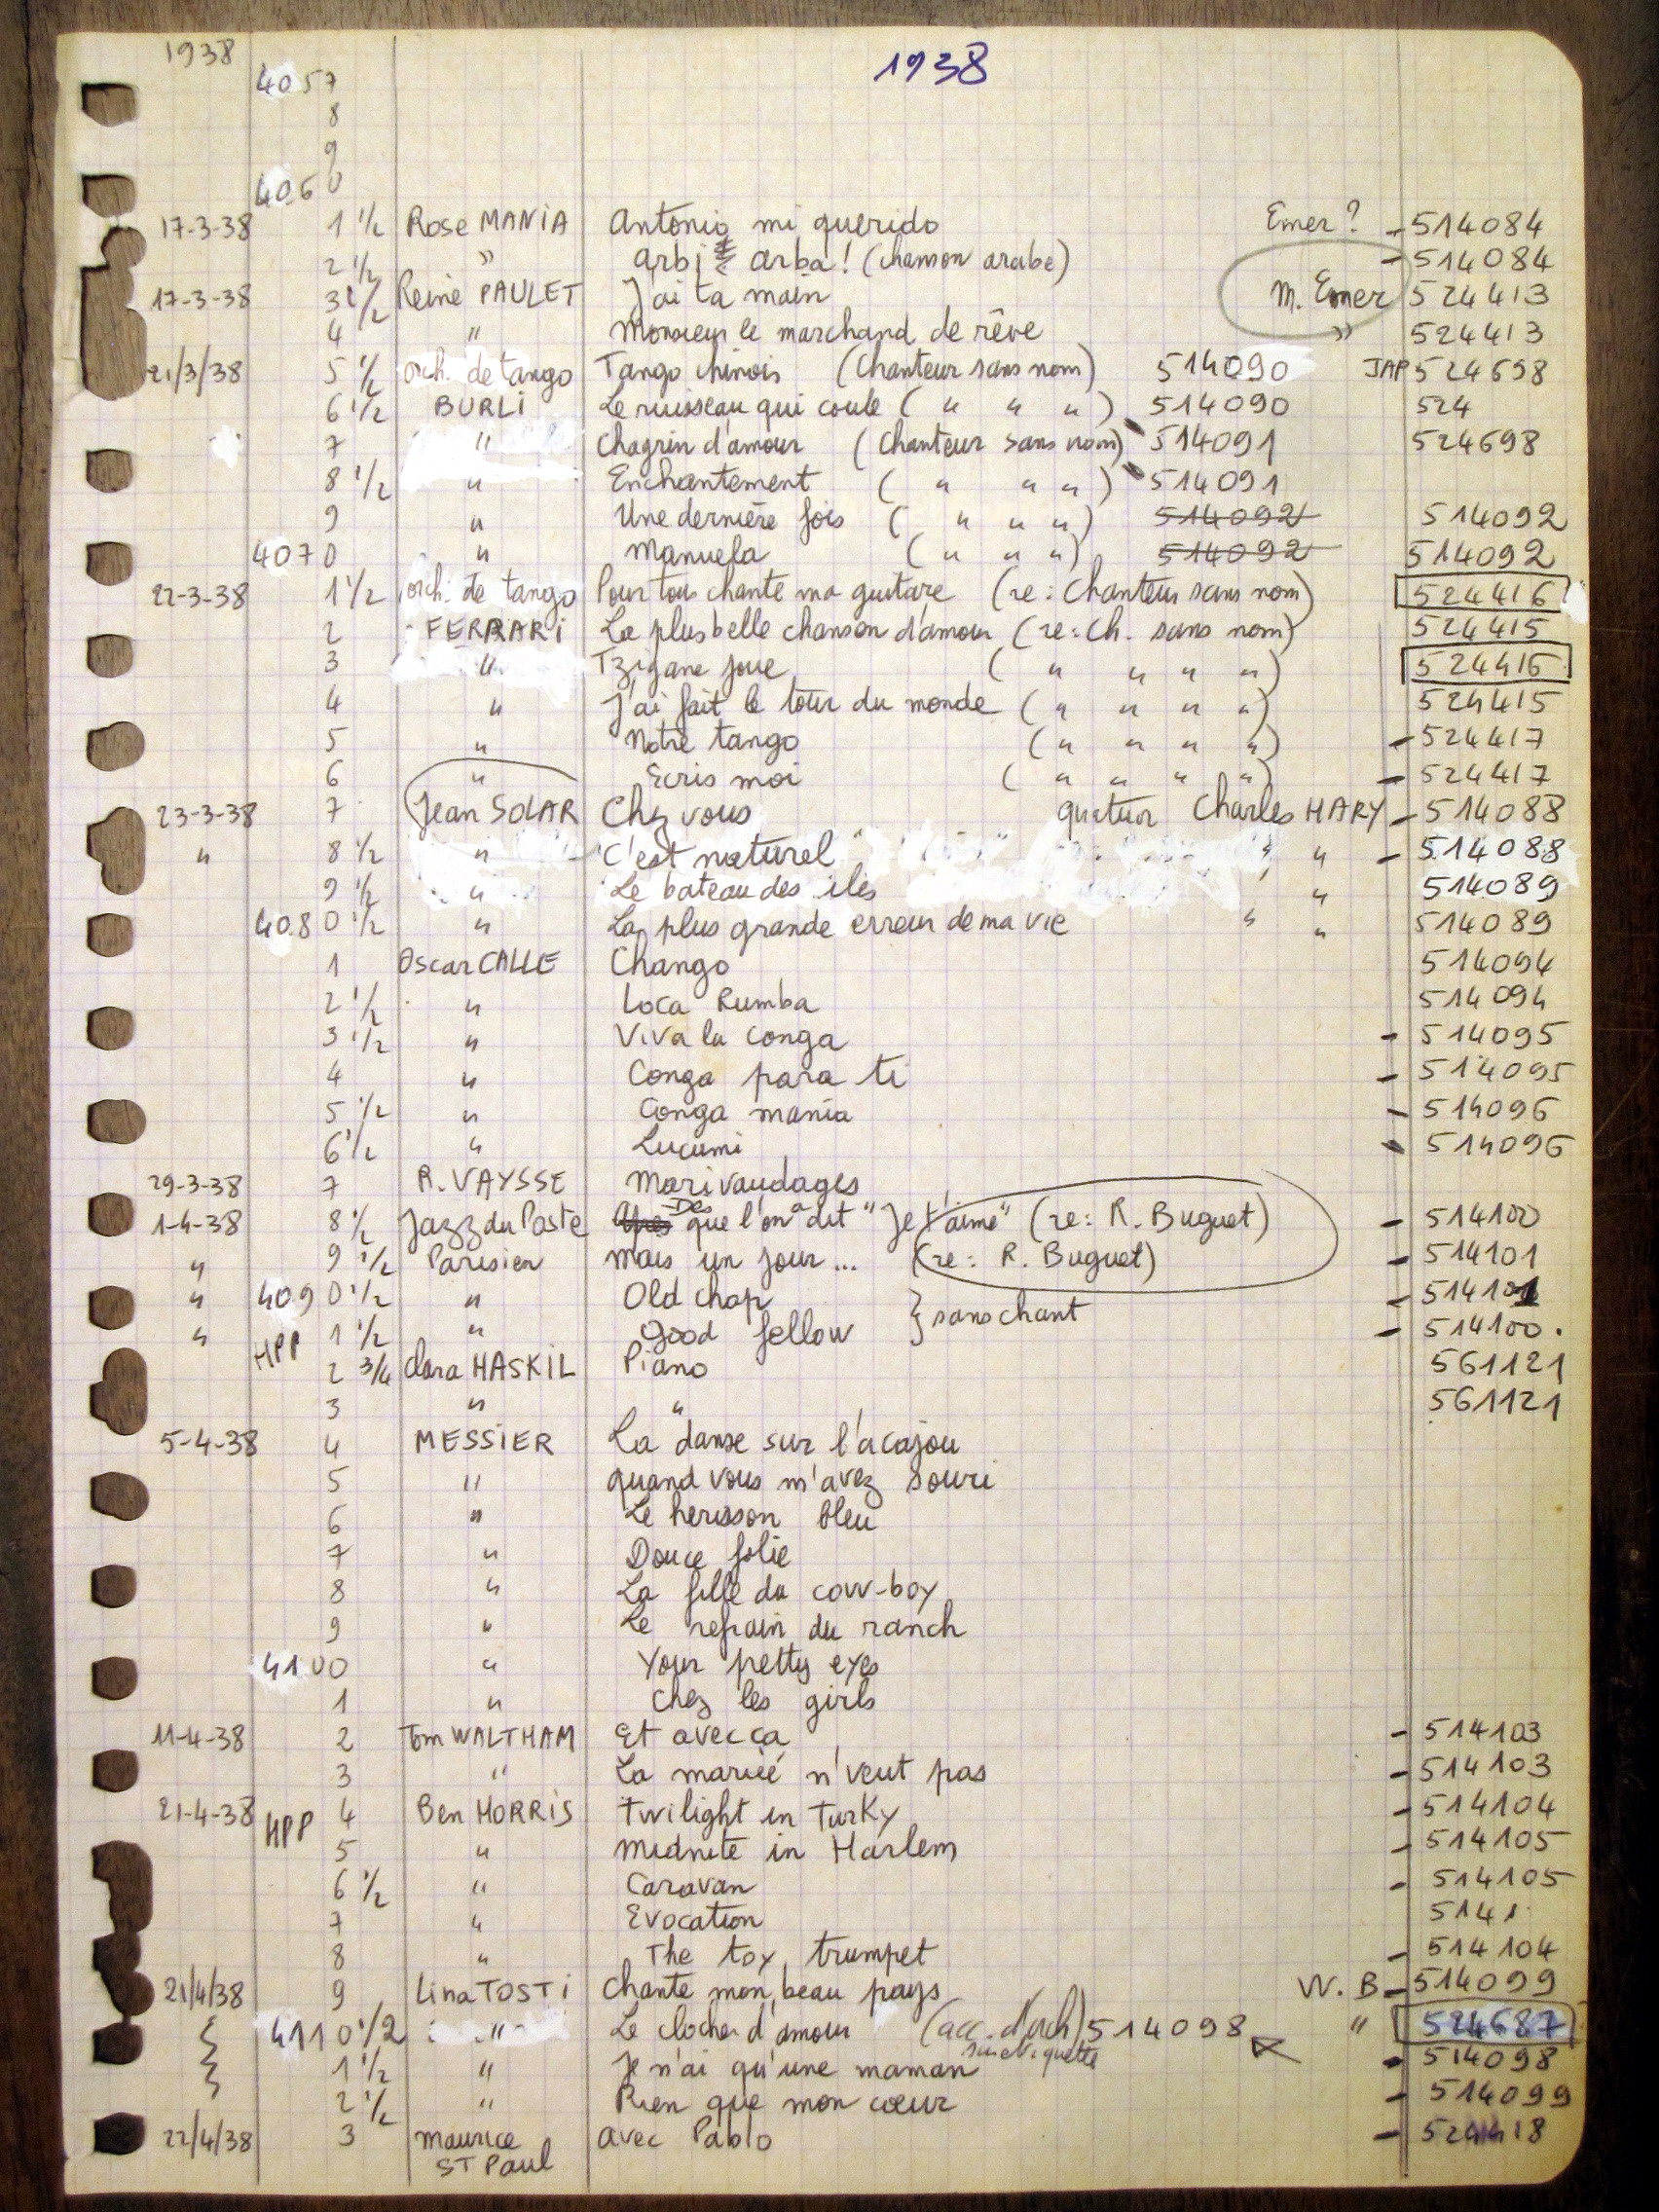 1938 1938
4057
8
9
4060
17-3-38 1 1/2 Rose MANIA Antonio mi querido Emer? - 514084
2 1/2 " arbi arba! (chanson arabe) - 514084
17-3-38 3 1/2 Reine PAULET J'ai ta main M. Emer 524413
4 " Monsieur le marchand de rêve " 524413
21/3/38 5 1/2 orch. de tango Tango chinois (Chanteur sans nom) 514090 JAP 524698
6 1/2 BURLI Le ruisseau qui coule ( " " " ) 514090 524
7 " Chagrin d'amour (Chanteur sans nom) 514091 524698
8 1/2 " Enchantement ( " " " ) 514091
9 " Une dernière fois ( " " " ) 514092 514092
4070 " Manuela ( " " " ) 514092 514092
22-3-38 1 1/2 orch. de tango Pour tous chante ma guitare (re: Chanteur sans nom) 524416
2 FERRARI La plus belle chanson d'amour (re: Ch. sans nom) 524415
3 " Tzigane joue ( " " " " ) 524416
4 " J'ai fait le tour du monde ( " " " " ) 524415
5 " Notre tango ( " " " " ) - 524417
6 " Ecris moi ( " " " " ) - 524417
23-3-38 7 Jean SOLAR Chez vous quatuor Charles MARY - 514088
" 8 1/2 " C'est naturel " " - 514088
9 1/2 " Le bateau des iles " 514089
4080 1/2 " La plus grande erreur de ma vie " " 514089
1 Oscar CALLE Chango 514094
2 1/2 " Loca Rumba 514094
3 1/2 " Viva la conga - 514095
4 " Conga para ti - 514095
5 1/2 " Conga mania - 514096
6 1/2 " Lucumi - 514096
29-3-38 7 R. VAYSSE Marivaudages
1-4-38 8 1/2 Jazz du Poste Des que l'on a dit "Je t'aime" (re: R. Buguet) - 514100
" 9 1/2 Parisien Mais un jour... (re: R. Buguet) - 514101
" 4090 1/2 " Old chap } sans chant - 514101
" HPP 1 1/2 " Good fellow - 514100.
2 3/4 Clara HASKIL Piano 561121
3 " " 561121
5-4-38 4 MESSIER La danse sur l'acajou
5 " quand vous m'avez souri
6 " Le herisson bleu
7 " Douce folie
8 " La fille du cow-boy
9 " Le refrain du ranch
4100 " Your petty eyes
1 " Chez les girls
11-4-38 2 Tom WALTHAM Et avec ça - 514103
3 " La mariée n'veut pas - 514103
21-4-38 HPP 4 Ben HORRIS Twilight in TurKy - 514104
5 " Midnite in Harlem - 514105
6 1/2 " Caravan - 514105
7 " Evocation 5141
8 " The toy trumpet - 514104
21/4/38 9 Lina TOSTI Chante mon beau pays W. B - 514099
4110 1/2 " Le clocher d'amour (acc. d'orch) 514098 " 524687
sur etiquette
1 1/2 " Je n'ai qu'une maman - 514098
2 1/2 " Rien que mon cœur - 514099
22/4/38 3 Maurice avec Pablo - 524418
ST Paul